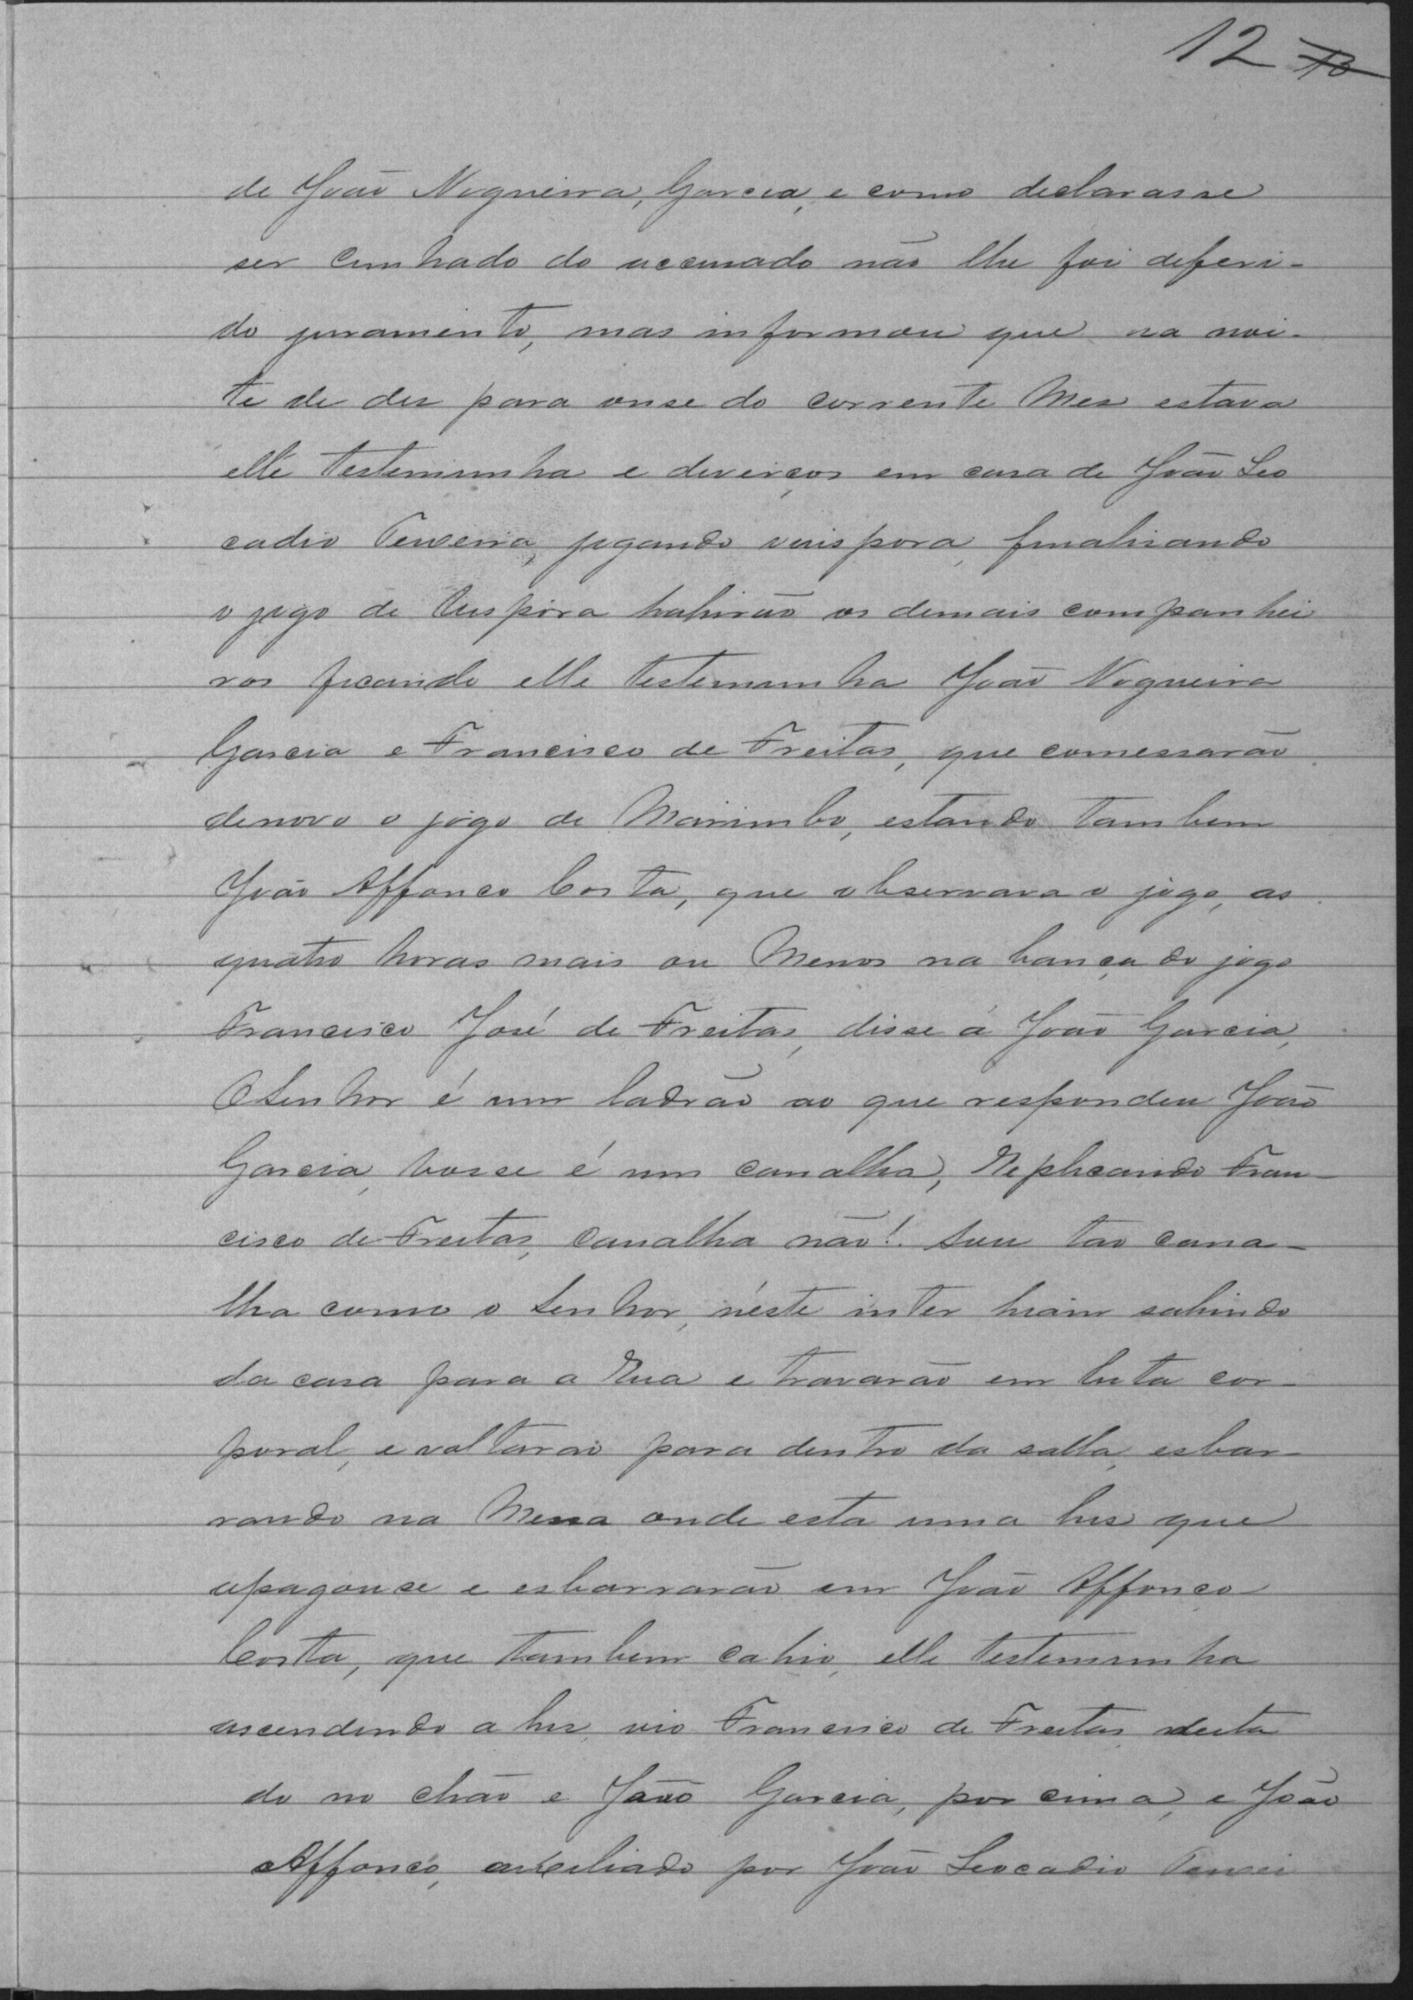 12 10
de João Nogueira, Garcia, e como declarasse
ser cunhado do accusado não lhe foi deferi-
do juramento, mas informou que na noi-
te de dez para onse do corrente Mez estava
elle testemunha e diverços em casa de João Leo
cadio Teixeira, jogando vispora, finalisando
o jogo de Vispora sahirão os demais companhei
ros ficando elle testemunha João Nogueira
Garcia e Francisco de Freitas, que comessarão
denovo o jogo de Marimbo, estando tambem
João Affonço Costa, que observava o jogo, as
quatro horas mais ou Menos na banca do jogo
Francisco José de Freitas, disse á João Garcia,
O Senhor é um ladrão ao que respondeu João
Garcia, vosse é um canalha, Replicando Fran-
cisco de Freitas, canalha não! Sou tão cana-
lha como o Senhor, néste inter hiam sahindo
da casa para a Rua e travarão em luta cor-
poral, e voltarão para dentro da salla, esbar-
rando na Mesa onde esta uma lus que
apagouse e esbarrarão em João Affonço
Costa, que tambem cahio, elle testemunha
ascendendo a luz, vio Francisco de Freitas deita
do no chão e João Garcia, por cima, e João
Affonço, auxiliado por João Leocadio Teixei